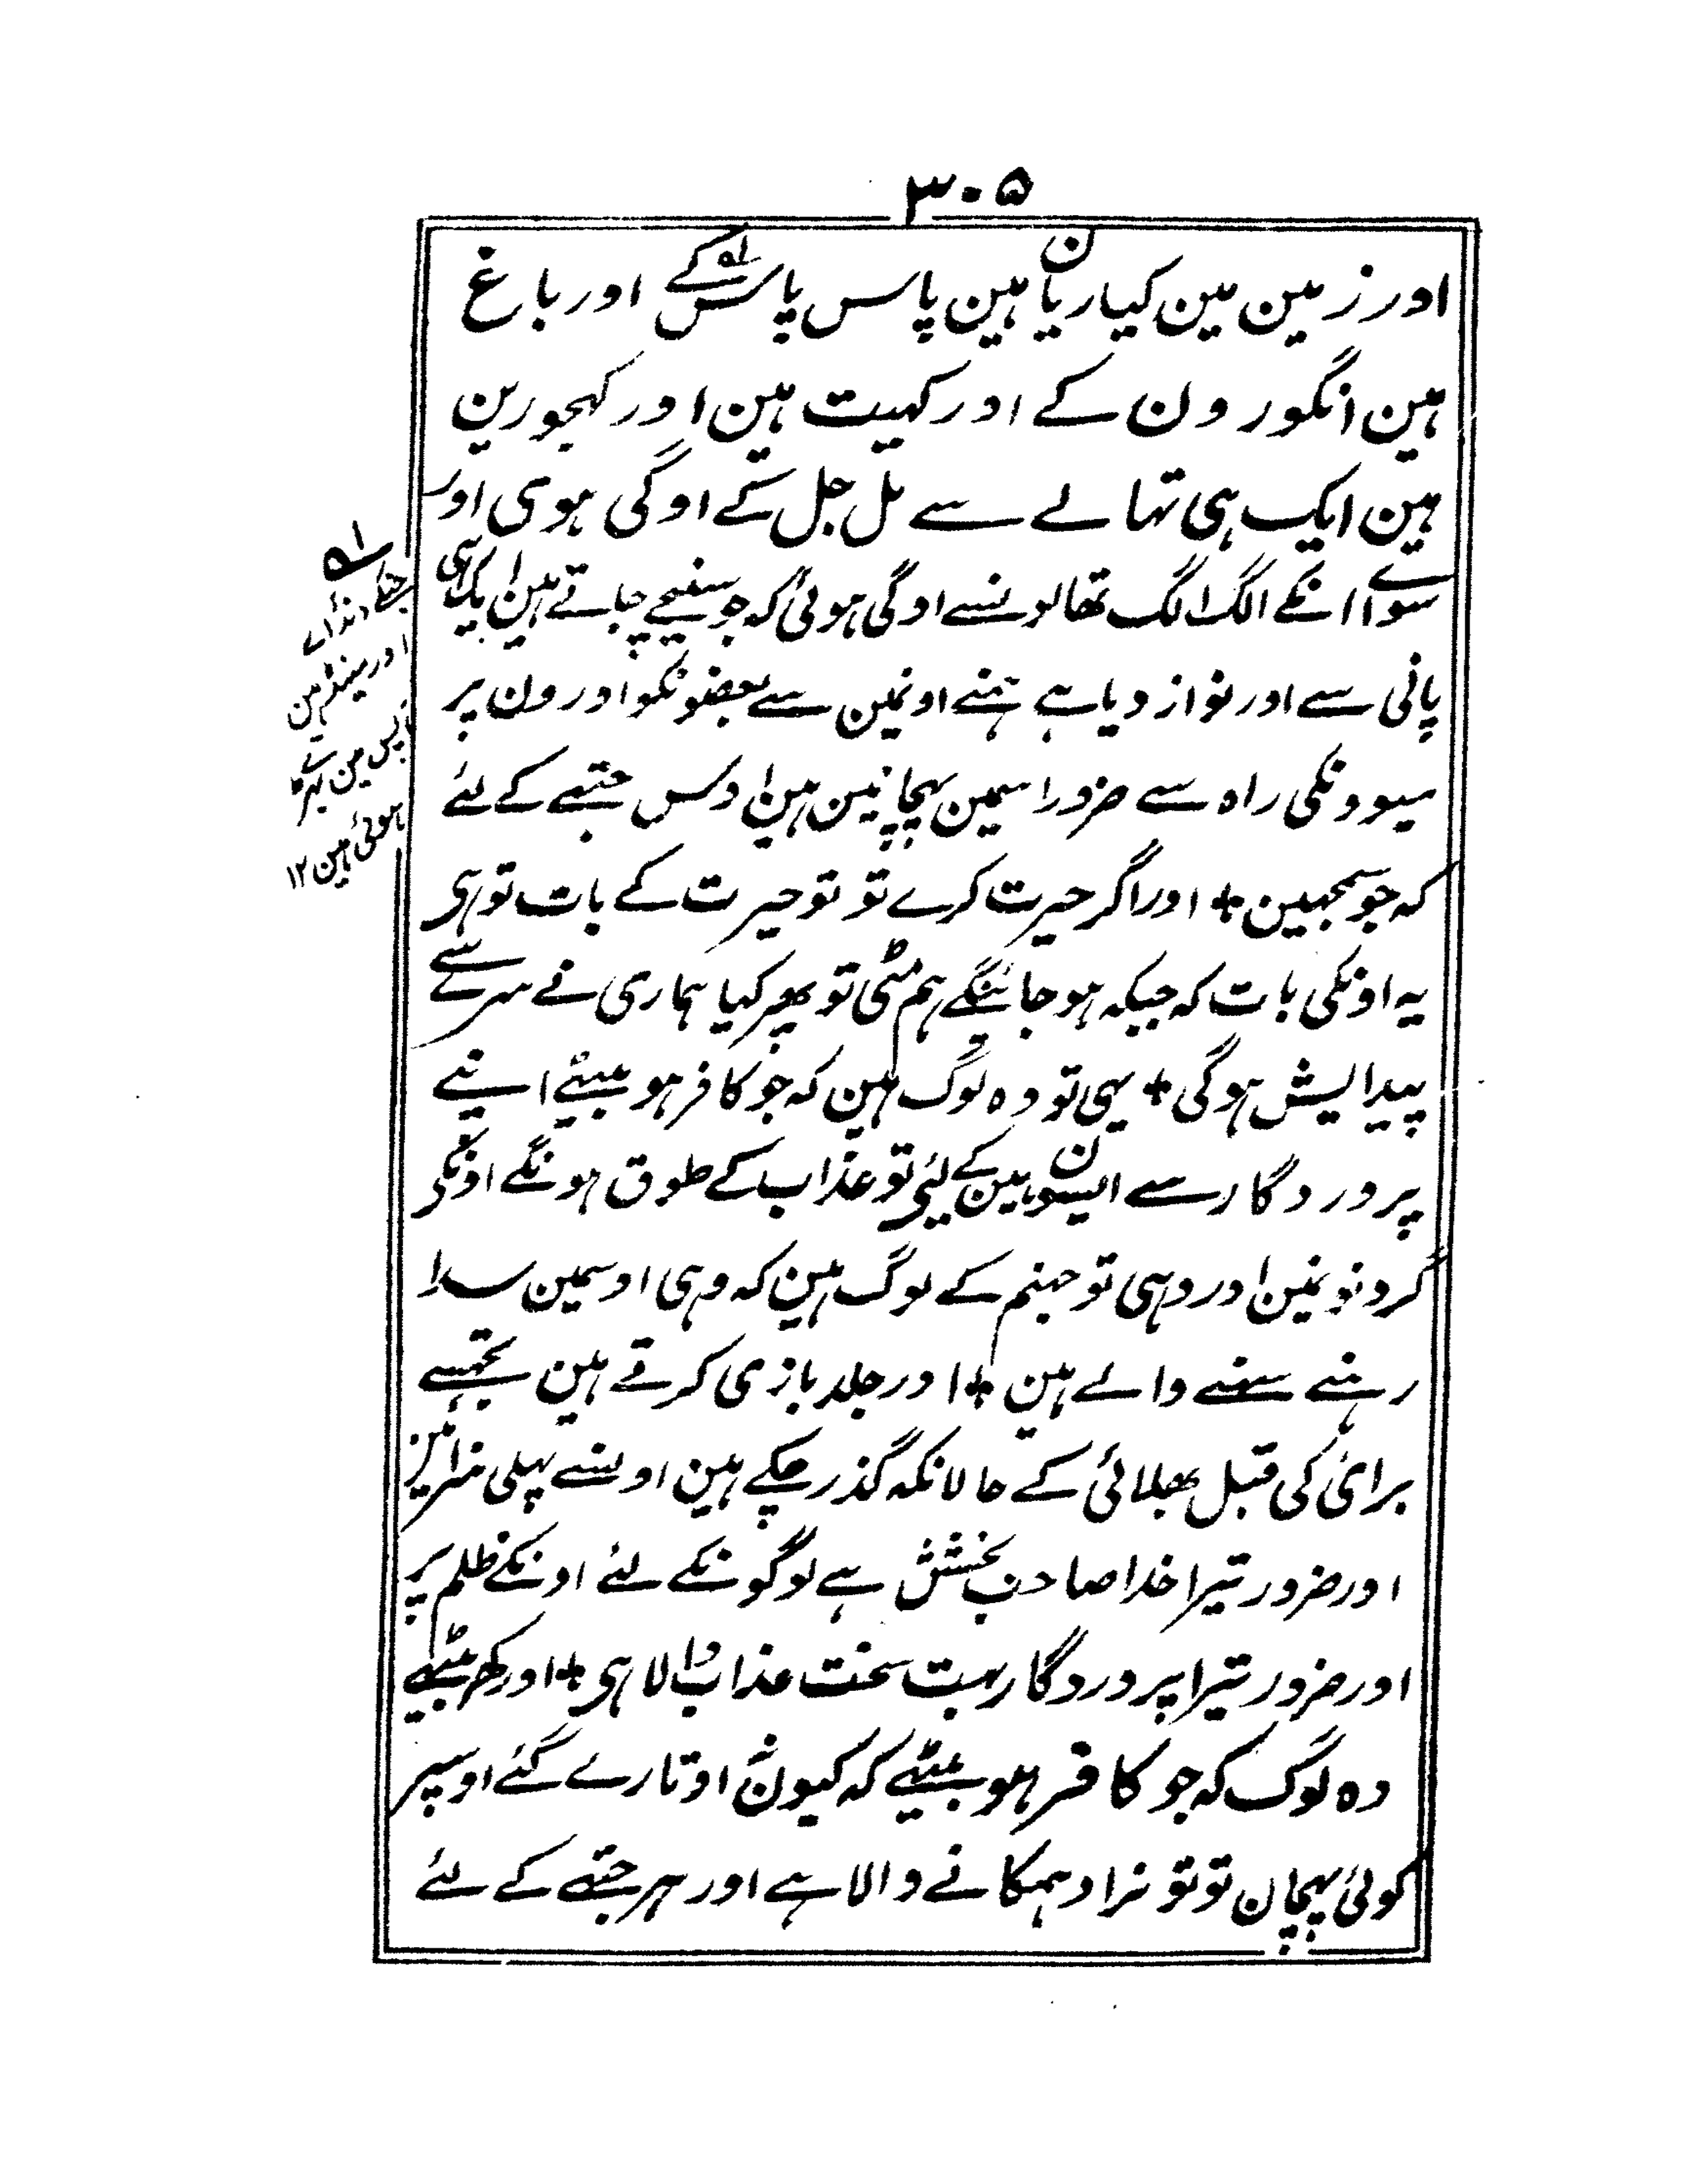 ۳۰۵
اور زمین مین کیاریان ہین پاس پاس کے اور باغ
ہین انگورون کے اور کہیت ہین اور کہجورین
ہین ایک ہی تہالے سے مل جل کے اوگی ہوی اور
سواے انکے الگ الگ تھالونسے اوگی ہوئی کہ جو سینچے جاتے ہین ایک ہی
پانی سے اور نواز دیا ہے ہمنے اونمین سے بعضونکو اورون پر
میوونکی راہ سے ضرور اسمین پہچانین ہین اوس جتھے کے لئے
کہ جو سمجہین + اور اگر حیرت کرے تو تو حیرت کے بات تو ہی
یہ اونکی بات کہ جبکہ ہو جائینگے ہم مٹی تو پھر کیا ہماری نے سرے سے
پیدایش ہوگی + یہی تو وہ لوگ ہین کہ جو کافر ہو بیٹھے اپنے
پروردگار سے ایسون ہین کے لئی تو عذاب کے طوق ہونگے اونکی
گردنونمین اور وہی تو جہنم کے لوگ ہین کہ وہی اوسمین سدا
رہنے سہنے والے ہین + اور جلد بازی کرتے ہین تجہسے
برائ کی قبل بھلائی کے حالانکہ گذر چکے ہین اونسے پہلی سزائین
اور ضرور تیرا خدا صاحب بخشش ہے لوگونکے لئے اونکے ظلم پر
اور ضرور تیرا پروردگار بہت سخت عذاب والا ہی + اور کہہ بیٹھے
وہ لوگ کہ جو کافر ہو بیٹھے کہ کیون نہ اوتارے گئے اوسپر
کوئی پہچان تو تو نرا دہمکانے والا ہے اور ہر جتھے کے لئے
اور مینڈہین
آپس مین
ہوئی ہین ۱۲